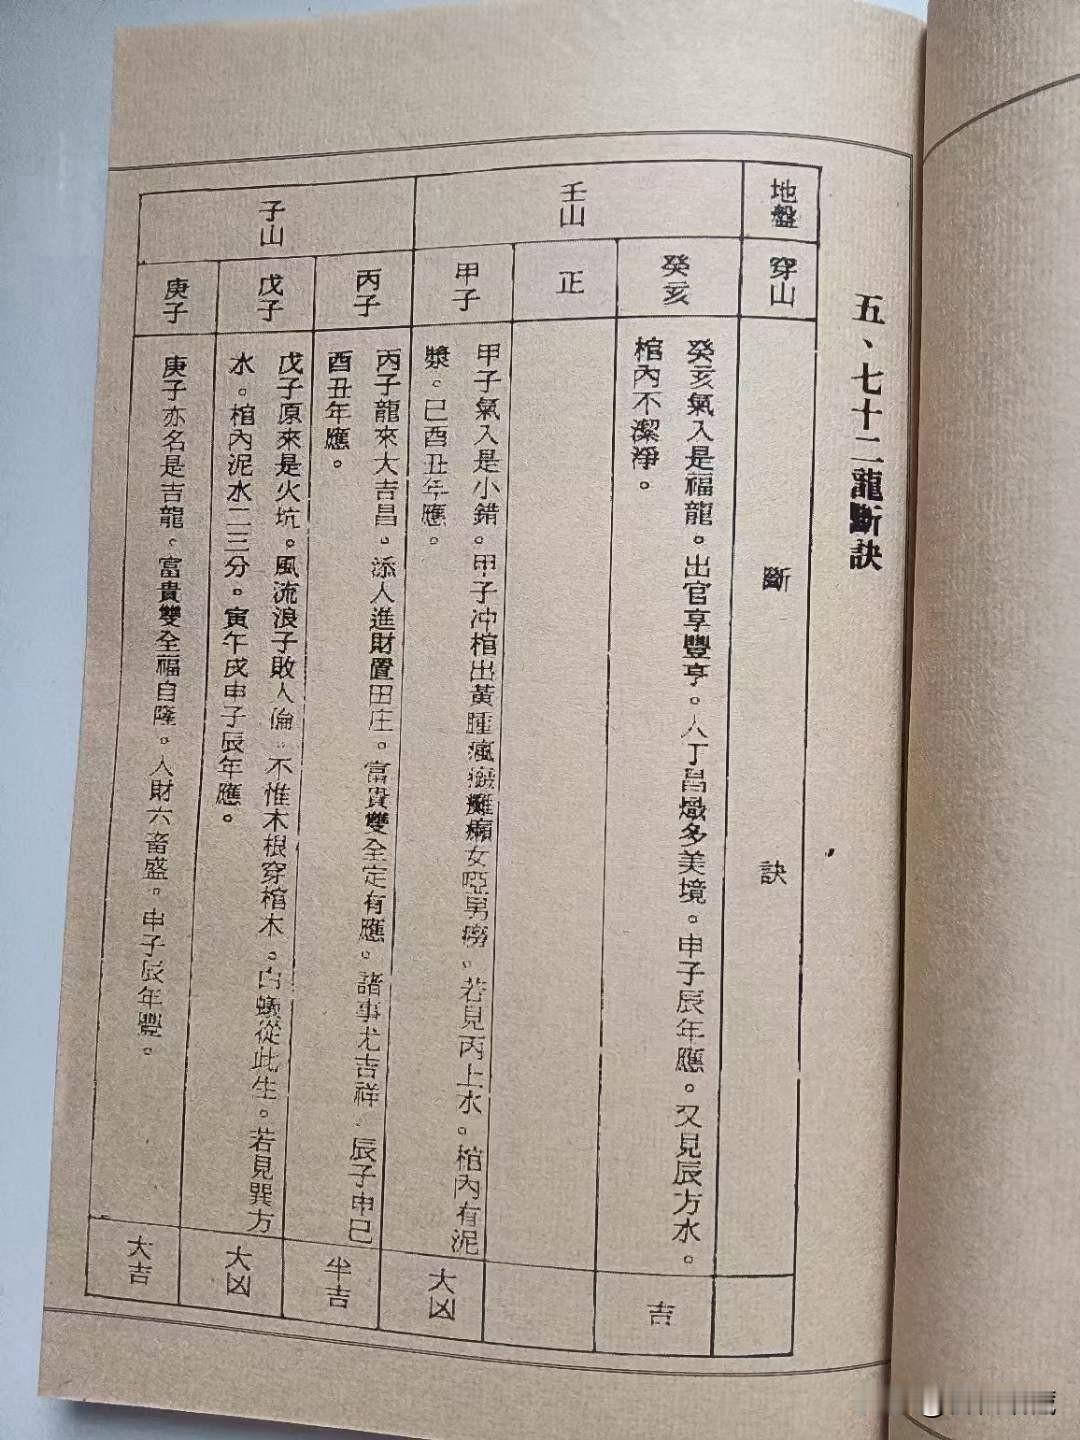 五、七十二龍斷訣
地盤
穿山
斷訣
壬山
癸亥
癸亥氣入是福龍。出官享豐亨。人丁昌熾多美境。申子辰年應。又見辰方水。
棺內不潔淨。
吉
正
甲子
甲子氣入是小錯。甲子冲棺出黃腫瘋癱女啞男癆。若見丙上水。棺內有泥
漿。巳酉丑年應。
大凶
子山
丙子
丙子龍來大吉昌。添人進財置田庄。富貴雙全定有應。諸事尤吉祥。辰子申巳
酉丑年應。
半吉
戊子
戊子原來是火坑。風流浪子敗人倫。不惟木根穿棺木。白蟻從此生。若見巽方
水。棺內泥水二三分。寅午戌申子辰年應。
大凶
庚子
庚子亦名是吉龍。富貴雙全福自隆。人財六畜盛。申子辰年豐。
大吉